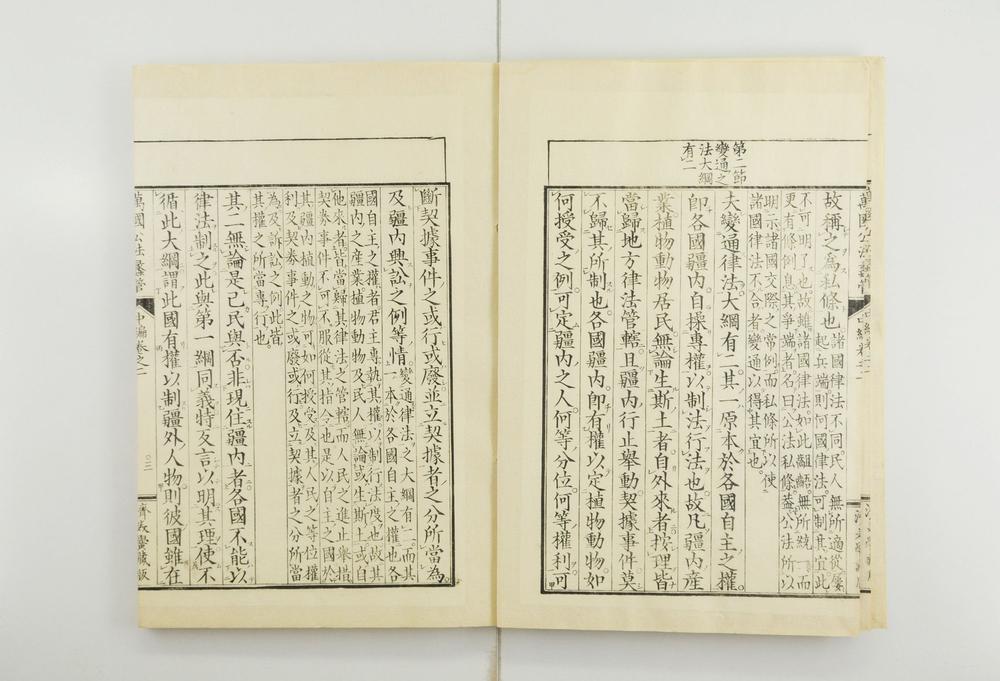 第二節
變通之
法大綱
有二
故稱之爲私條也
諸國律法不同民人無所適從屢
起兵端則何國律法可制其宜此
不可明了也故雖諸國律法如此齟齬無所統一而
更有條例息其爭端者名曰公法私條蓋公法所以
明示諸國交際之常例而私條所以使
諸國律法不合者變通以得其宜也
夫變通律法大綱有二其一原本於各國自主之權
卽各國疆內自操專權以制法行法也故凡疆內產
業植物動物居民無論生斯土者自外來者按理皆
當歸地方律法管轄且疆內行止舉動契據事件莫
不歸其所制也各國疆內卽有權以定植物動物如
何授受之例可定疆內之人何等分位何等權利可
斷契據事件之或行或廢並立契據者之分所當為
及疆內興訟之例等情
變通律法之大綱有二而其
一本於各國自主之權也各
國自主之權者君主專執其權以制行法度也故其
疆內之產業植物動物及民人無論或生斯土或自
他來者皆當歸其律法之管轄而人民之進止舉措
契券事件不可不服從其指令也是以自主之國於
其疆內植動之物可如何授受及其人民之等位權
利及契券事件之或廢或行及立契據者之分所當
為及訴訟之例此皆
其權之所當專行也
其二無論是己民與否非現住疆內者各國不能以
律法制之此與第一綱同義特反言以明其理使不
循此大綱謂此國有權以制疆外人物則彼國雖在
萬國公法蠡管
中編卷之二
三